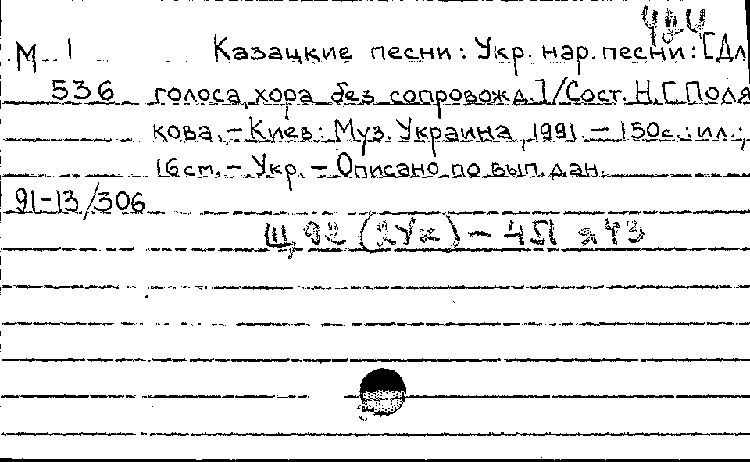 М 1 Казацкие песни: Укр. нар. песни: [Дл
536 голоса, хора без сопровожд.] / Сост. Н.Г. Поля
кова. – Киев: Муз. Украина, 1991. – 150с.: ил.;
16см. – Укр. – Описано по вып. дан.
91-13/306
Щ 92 (2Ук) – 4 я 43